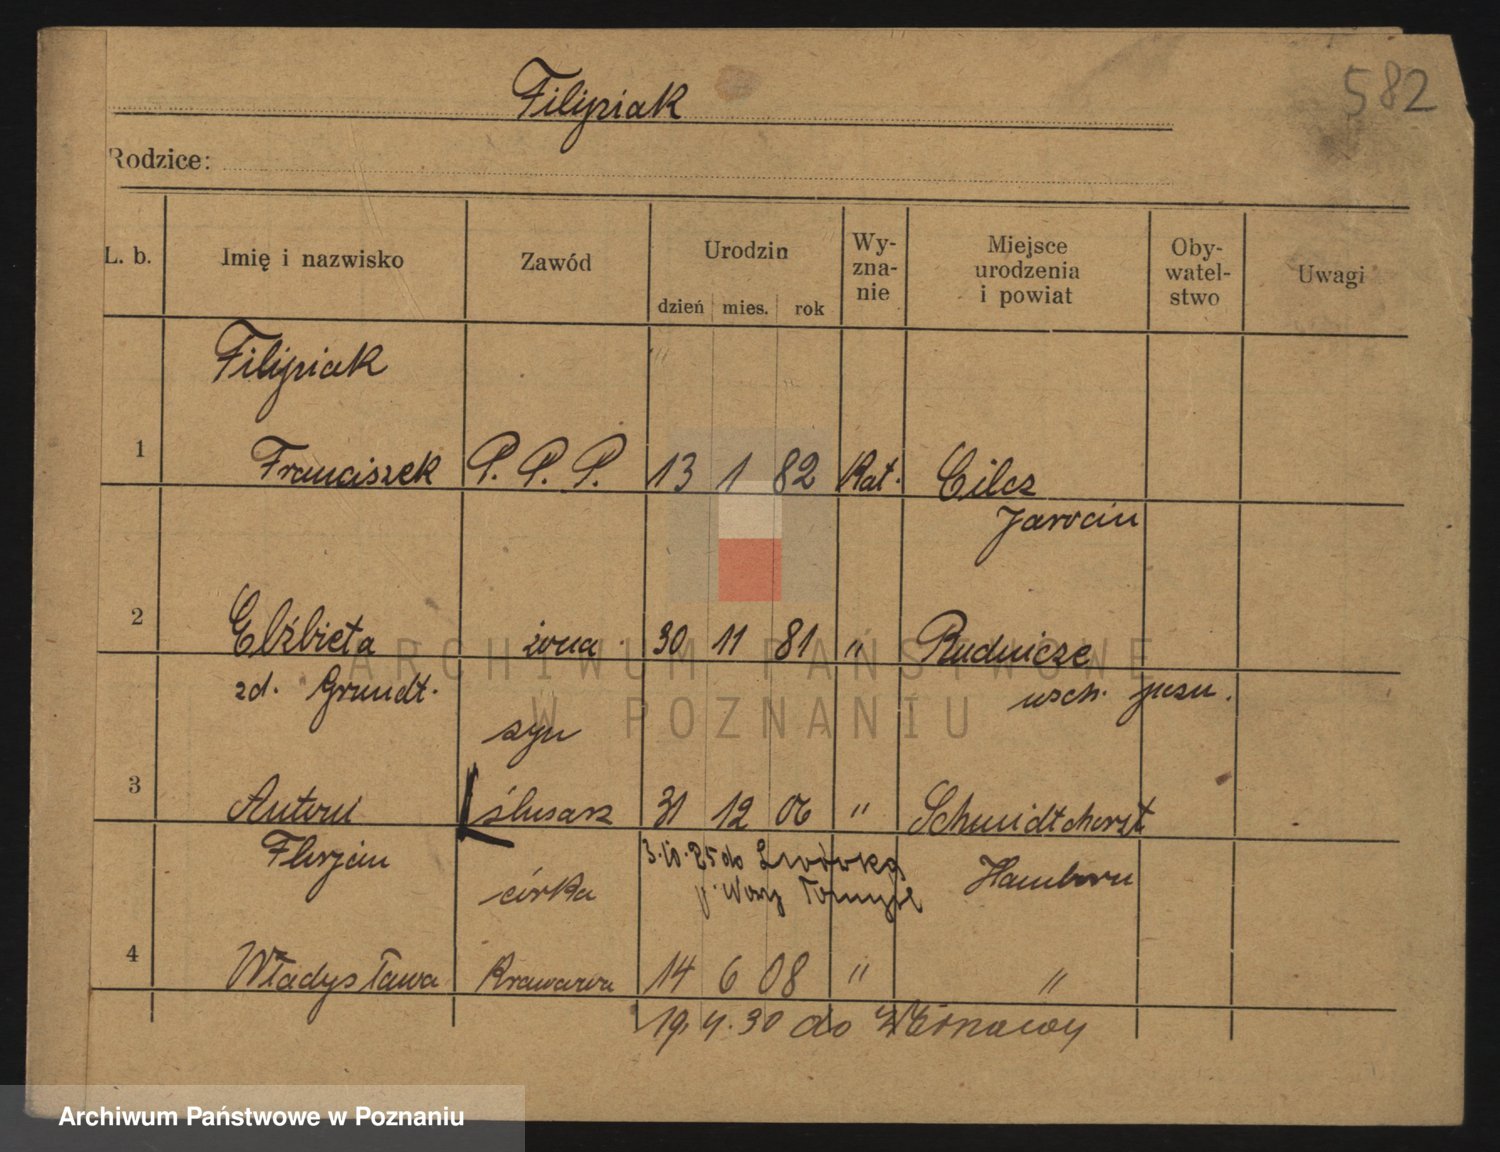 582
Filipiak
Rodzice:
L. b. Imię i nazwisko Zawód Urodzin dzień mies. rok Wy-zna-nie Miejsce urodzenia i powiat Oby-watel-stwo Uwagi
Filipiak
1 Franciszek P. P. P. 13 1 82 Kat. Cilcz
Jarocin
2 Elżbieta żona 30 11 81 " Rudnicze
zd. Grundt. wsch. pozn.
syn
3 Antoni ślusarz 31 12 06 " Schmidthorst
Florjan 3.10.25 do Lwówka Hamborn
córka p. Nowy Tomyśl
4 Władysława Krawcowa 14 6 08 " "
19. 4. 30 do
ARCHIWUM PAŃSTWOWE
W POZNANIU
Archiwum Państwowe w Poznaniu